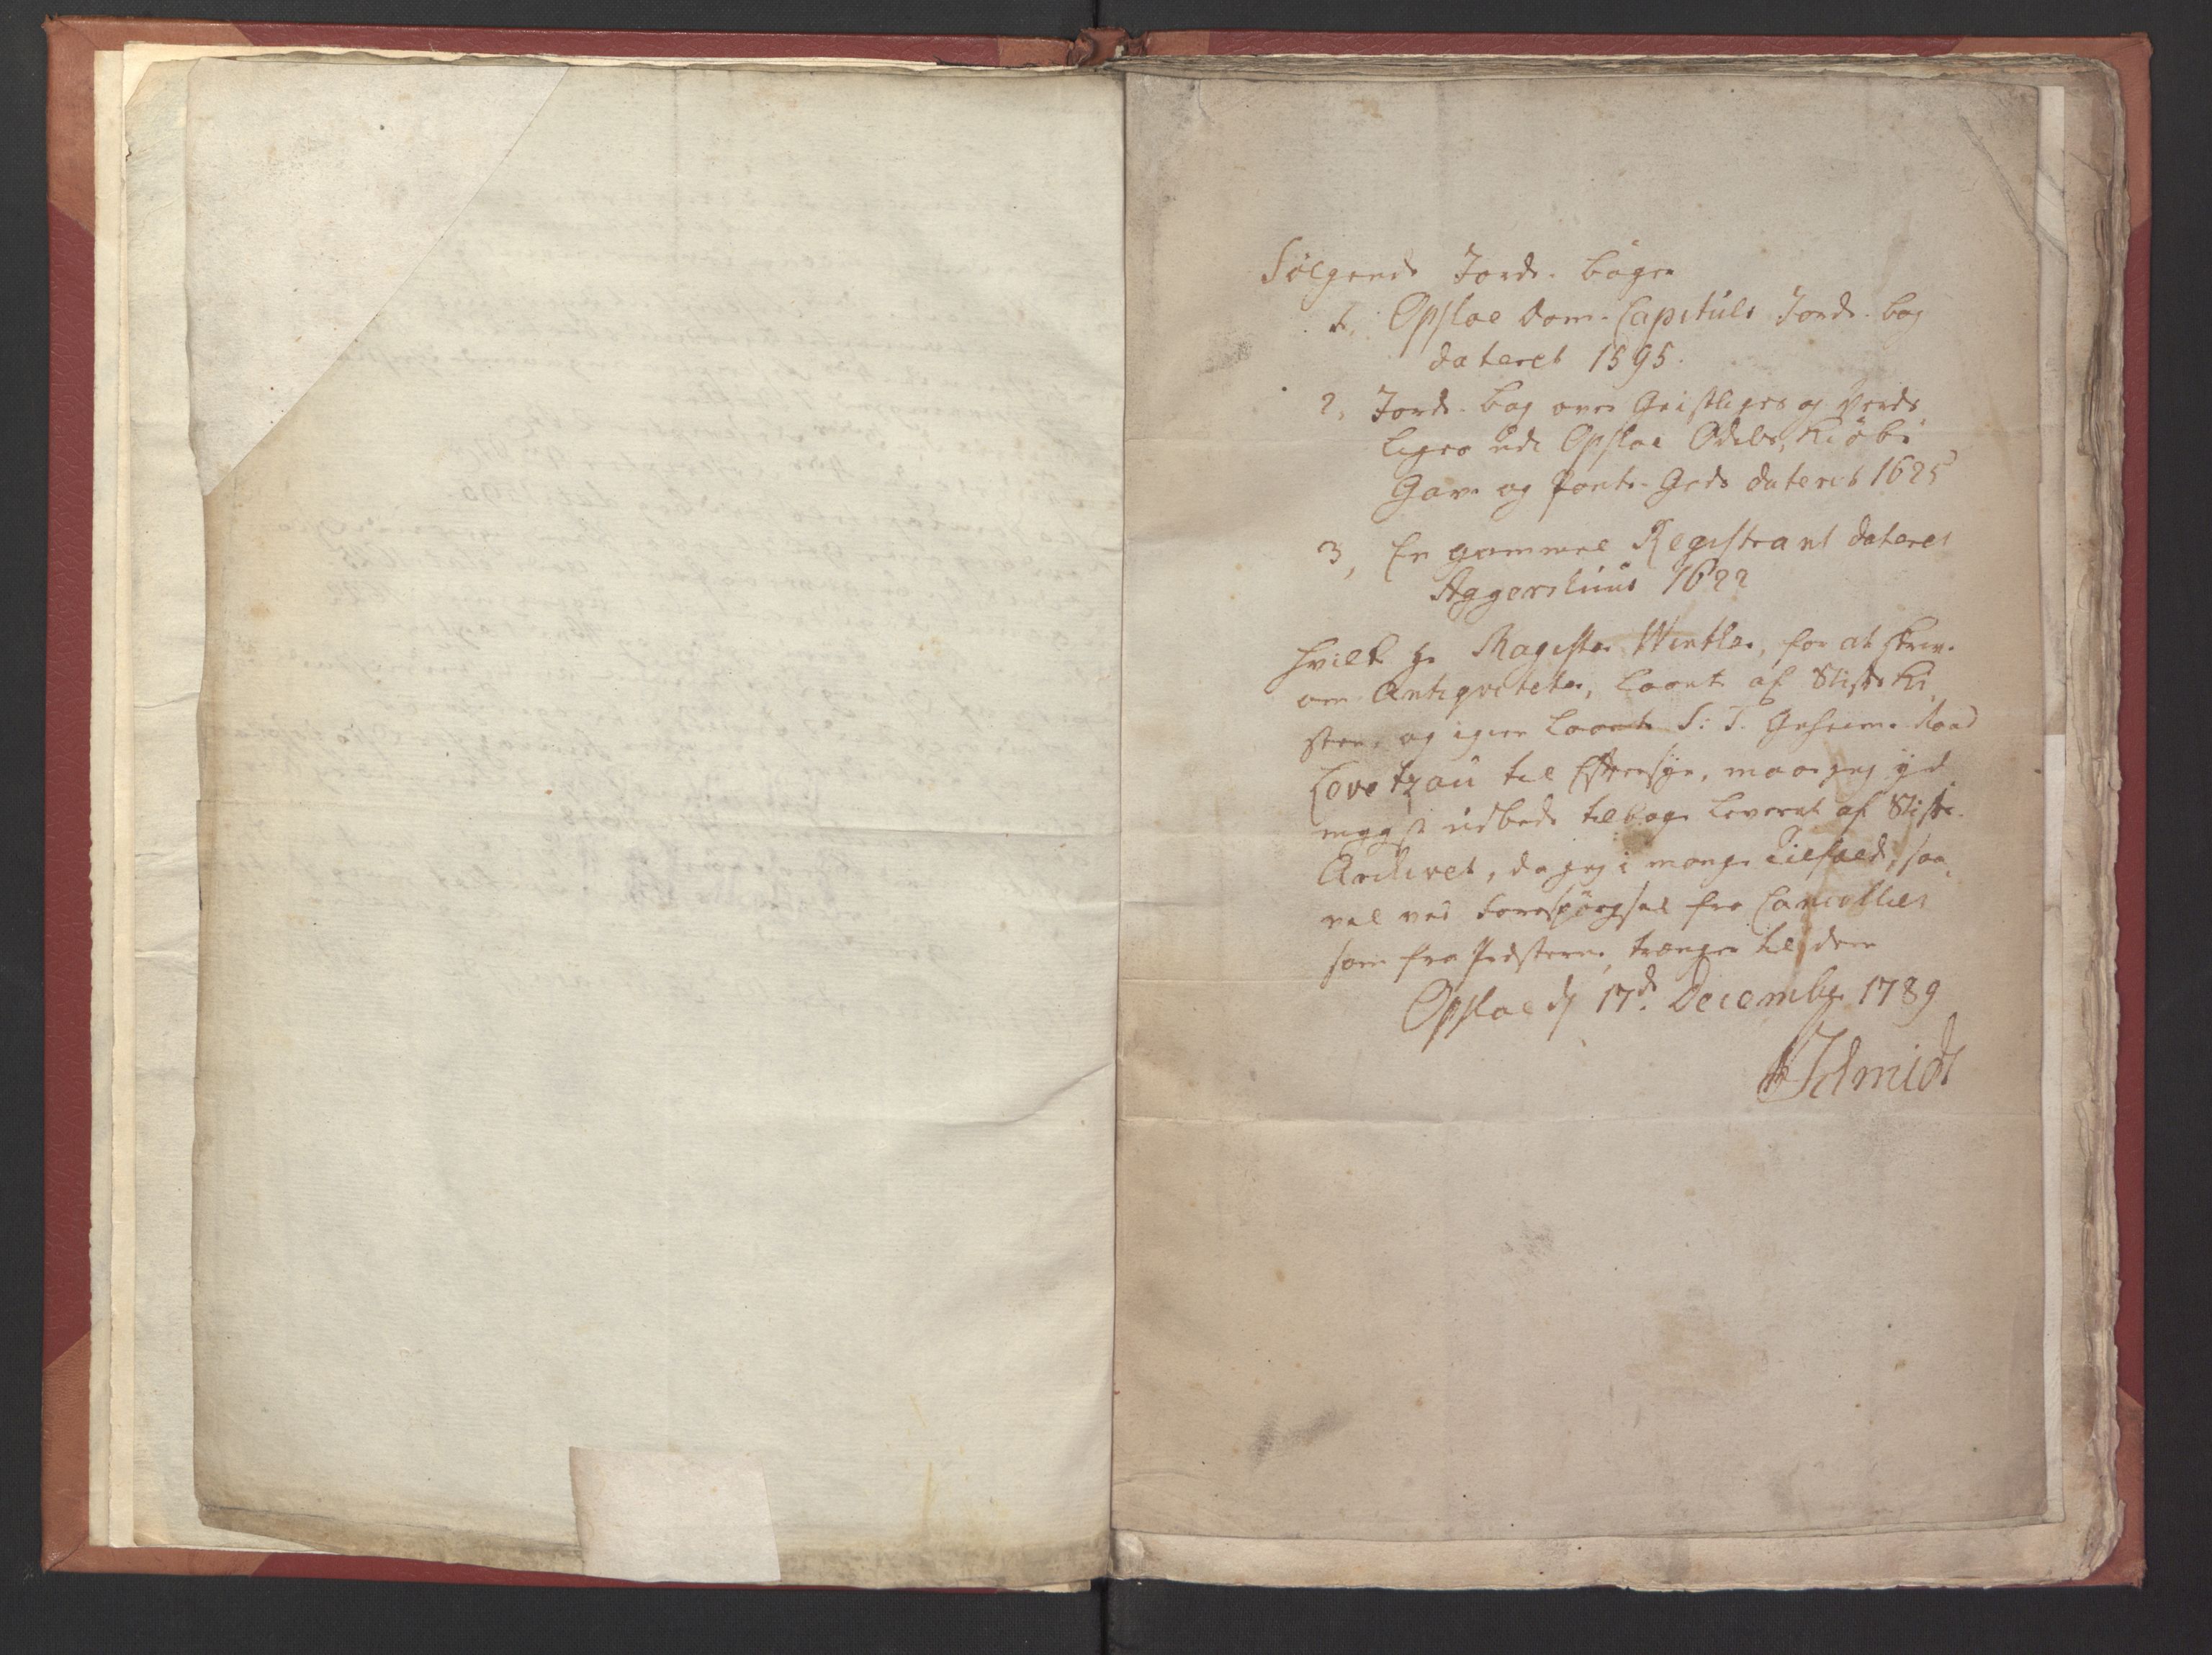 Følgende Jorde-bøger
1, Opsloe Dom-Capituls Jorde-bog
dateret 1595.
2, Jorde-bog over Geistliges og Verds
liges udi Opsloe Odels, Kiøbe
Gave og Pante-Gods dateret 1625
3, En gammel Registrant dateret
Aggershuus 1622
hvilke Hr Magister Winkler, for at skrive
om Antiqviteter, laante af Stifts Ki
sten, og igien laante S: T. Geheime Raad
Levetzau til Eftersyn, maae jeg yd
mygst udbede tilbage leveret af Stifts-
Archivet, da jeg i mange Tilfælde, saa
vel ved Forespørgsel fra Cancelliet
som fra Præsterne, trænger til dem
Opsloe d 17de December 1789
Schmidt